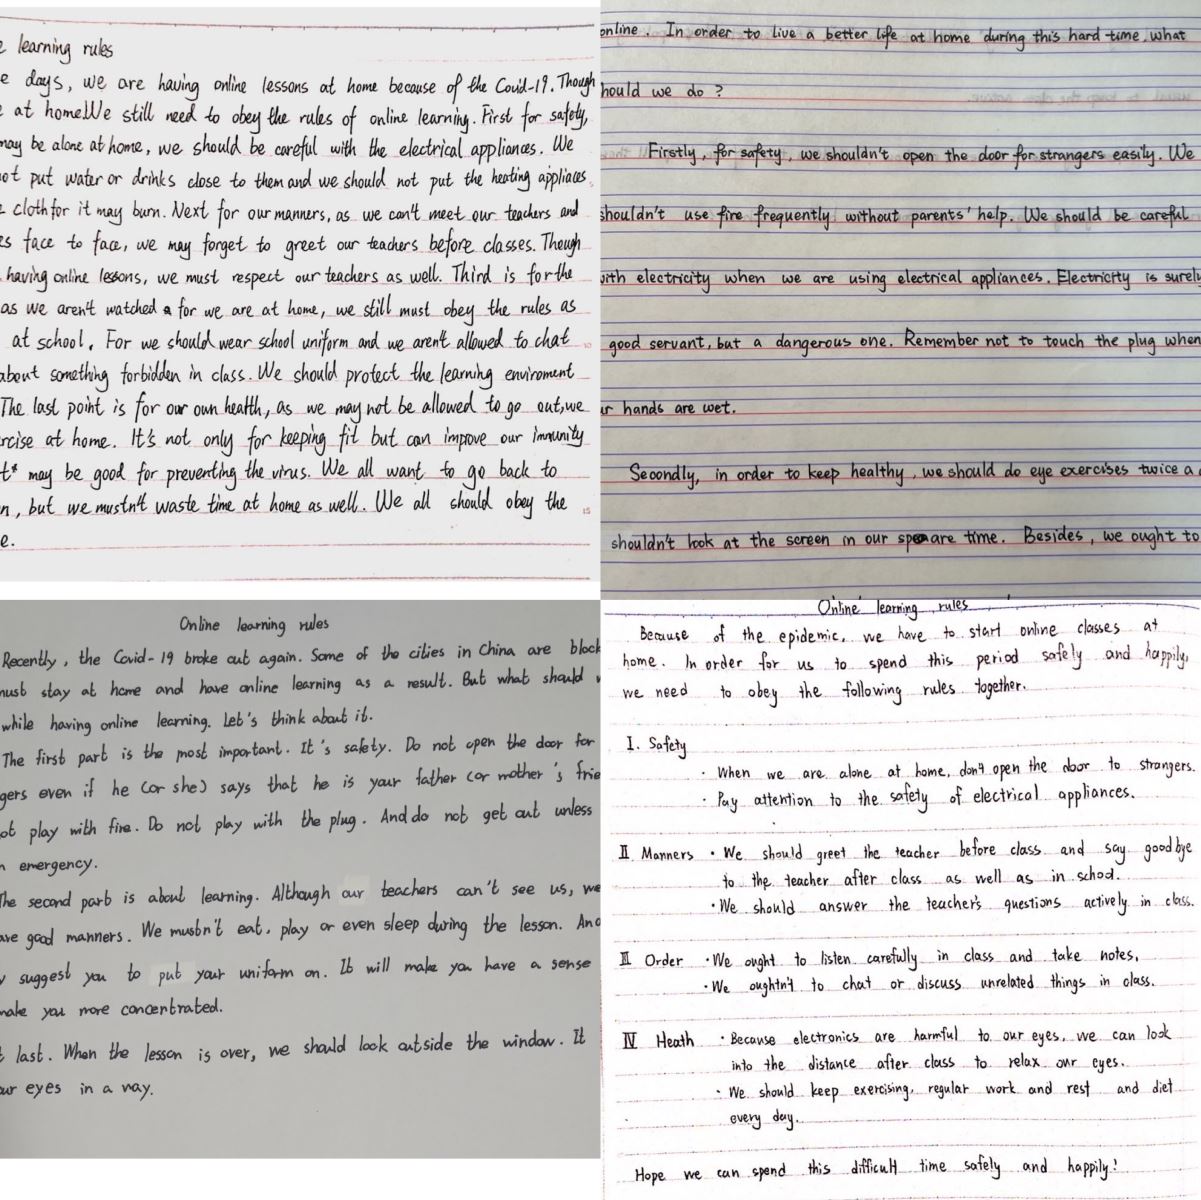 learning rules
days, we are having online lessons at home because of the Covid-19. Though
at home.We still need to obey the rules of online learning. First for safety,
may be alone at home, we should be careful with the electrical appliances. We
not put water or drinks close to them and we should not put the heating appliaces
cloth for it may burn. Next for our manners, as we can't meet our teachers and
face to face, we may forget to greet our teachers before classes. Though
having online lessons, we must respect our teachers as well. Third is for the
as we aren't watched for we are at home, we still must obey the rules as
at school. For we should wear school uniform and we aren't allowed to chat
about something forbidden in class. We should protect the learning enviroment
The last point is for our own health, as we may not be allowed to go out, we
rcise at home. It's not only for keeping fit but can improve our immunity
may be good for preventing the virus. We all want to go back to
n, but we mustn't waste time at home as well. We all should obey the
e.
online. In order to live a better life at home during this hard time, what
hould we do?
Firstly, for safety, we shouldn't open the door for strangers easily. We
shouldn't use fire frequently without parents' help. We should be careful
with electricity when we are using electrical appliances. Electricity is surely
good servant, but a dangerous one. Remember not to touch the plug when
ur hands are wet.
Secondly, in order to keep healthy, we should do eye exercises twice a
shouldn't look at the screen in our spare time. Besides, we ought to
Online learning rules
Recently, the Covid-19 broke out again. Some of the cities in China are block
must stay at home and have online learning as a result. But what should w
while having online learning. Let's think about it.
The first part is the most important. It's safety. Do not open the door for
gers even if he (or she) says that he is your father (or mother's frie
ot play with fire. Do not play with the plug. And do not get out unless
n emergency.
The second part is about learning. Although our teachers can't see us, we
ave good manners. We mustn't eat, play or even sleep during the lesson. And
y suggest you to put your uniform on. It will make you have a sense
make you more concentrated.
t last. When the lesson is over, we should look outside the window. It
our eyes in a way.
Online learning rules
Because of the epidemic, we have to start online classes at
home. In order for us to spend this period safely and happily,
we need to obey the following rules together.
I. Safety
· When we are alone at home, don't open the door to strangers.
· Pay attention to the safety of electrical appliances.
II Manners · We should greet the teacher before class and say goodbye
to the teacher after class as well as in school.
· We should answer the teacher's questions actively in class.
III Order · We ought to listen carefully in class and take notes.
· We oughtn't to chat or discuss unrelated things in class.
IV Heath · Because electronics are harmful to our eyes, we can look
into the distance after class to relax our eyes.
· We should keep exercising, regular work and rest and diet
every day.
Hope we can spend this difficult time safely and happily!